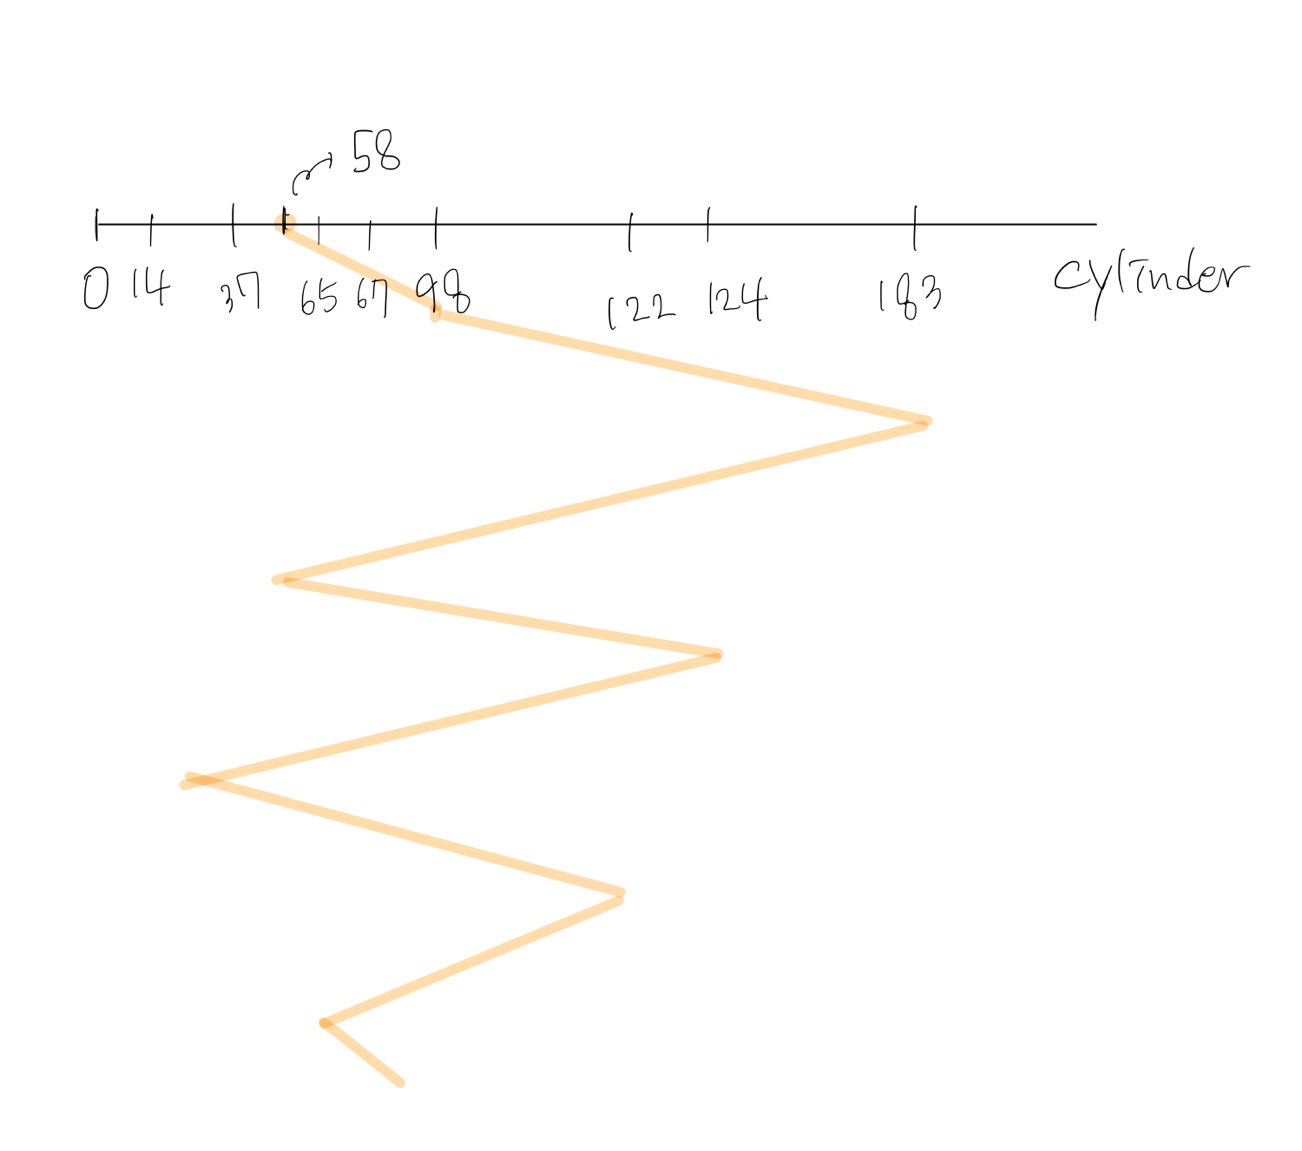 58
0 14 37 65 67 98 122 124 183 cylinder